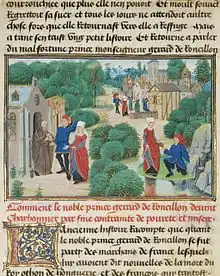 courouchiee que plus elle nen pouoit Et moult fouuent
regrettoit sa fuer et tous les iours ne attendoit autre
chose fors que elle retournast vers elle a reffuge. Mais
a tant sen taist ung petit listoire Et retourne a parler
du mal fortune prince monseigneur gerard de Ronsillon
Comment le noble prince gerard de ronsillon deuint
charbonnier par fine contrainte de pourete et misere
Ancienne histoire racompte que quant
le noble prince gerard de Ronsillon se fut
party des marchans de france lesquelz
luy auoient dit nouuelles de la mort du
roy othon de honguerie et des francois que